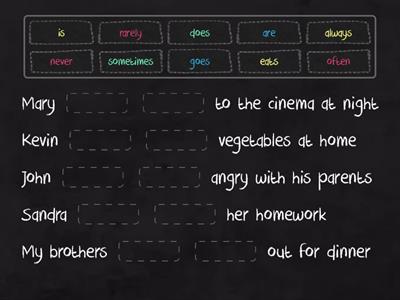 is rarely does are always
never sometimes goes eats often
Mary to the cinema at night
Kevin vegetables at home
John angry with his parents
Sandra her homework
My brothers out for dinner